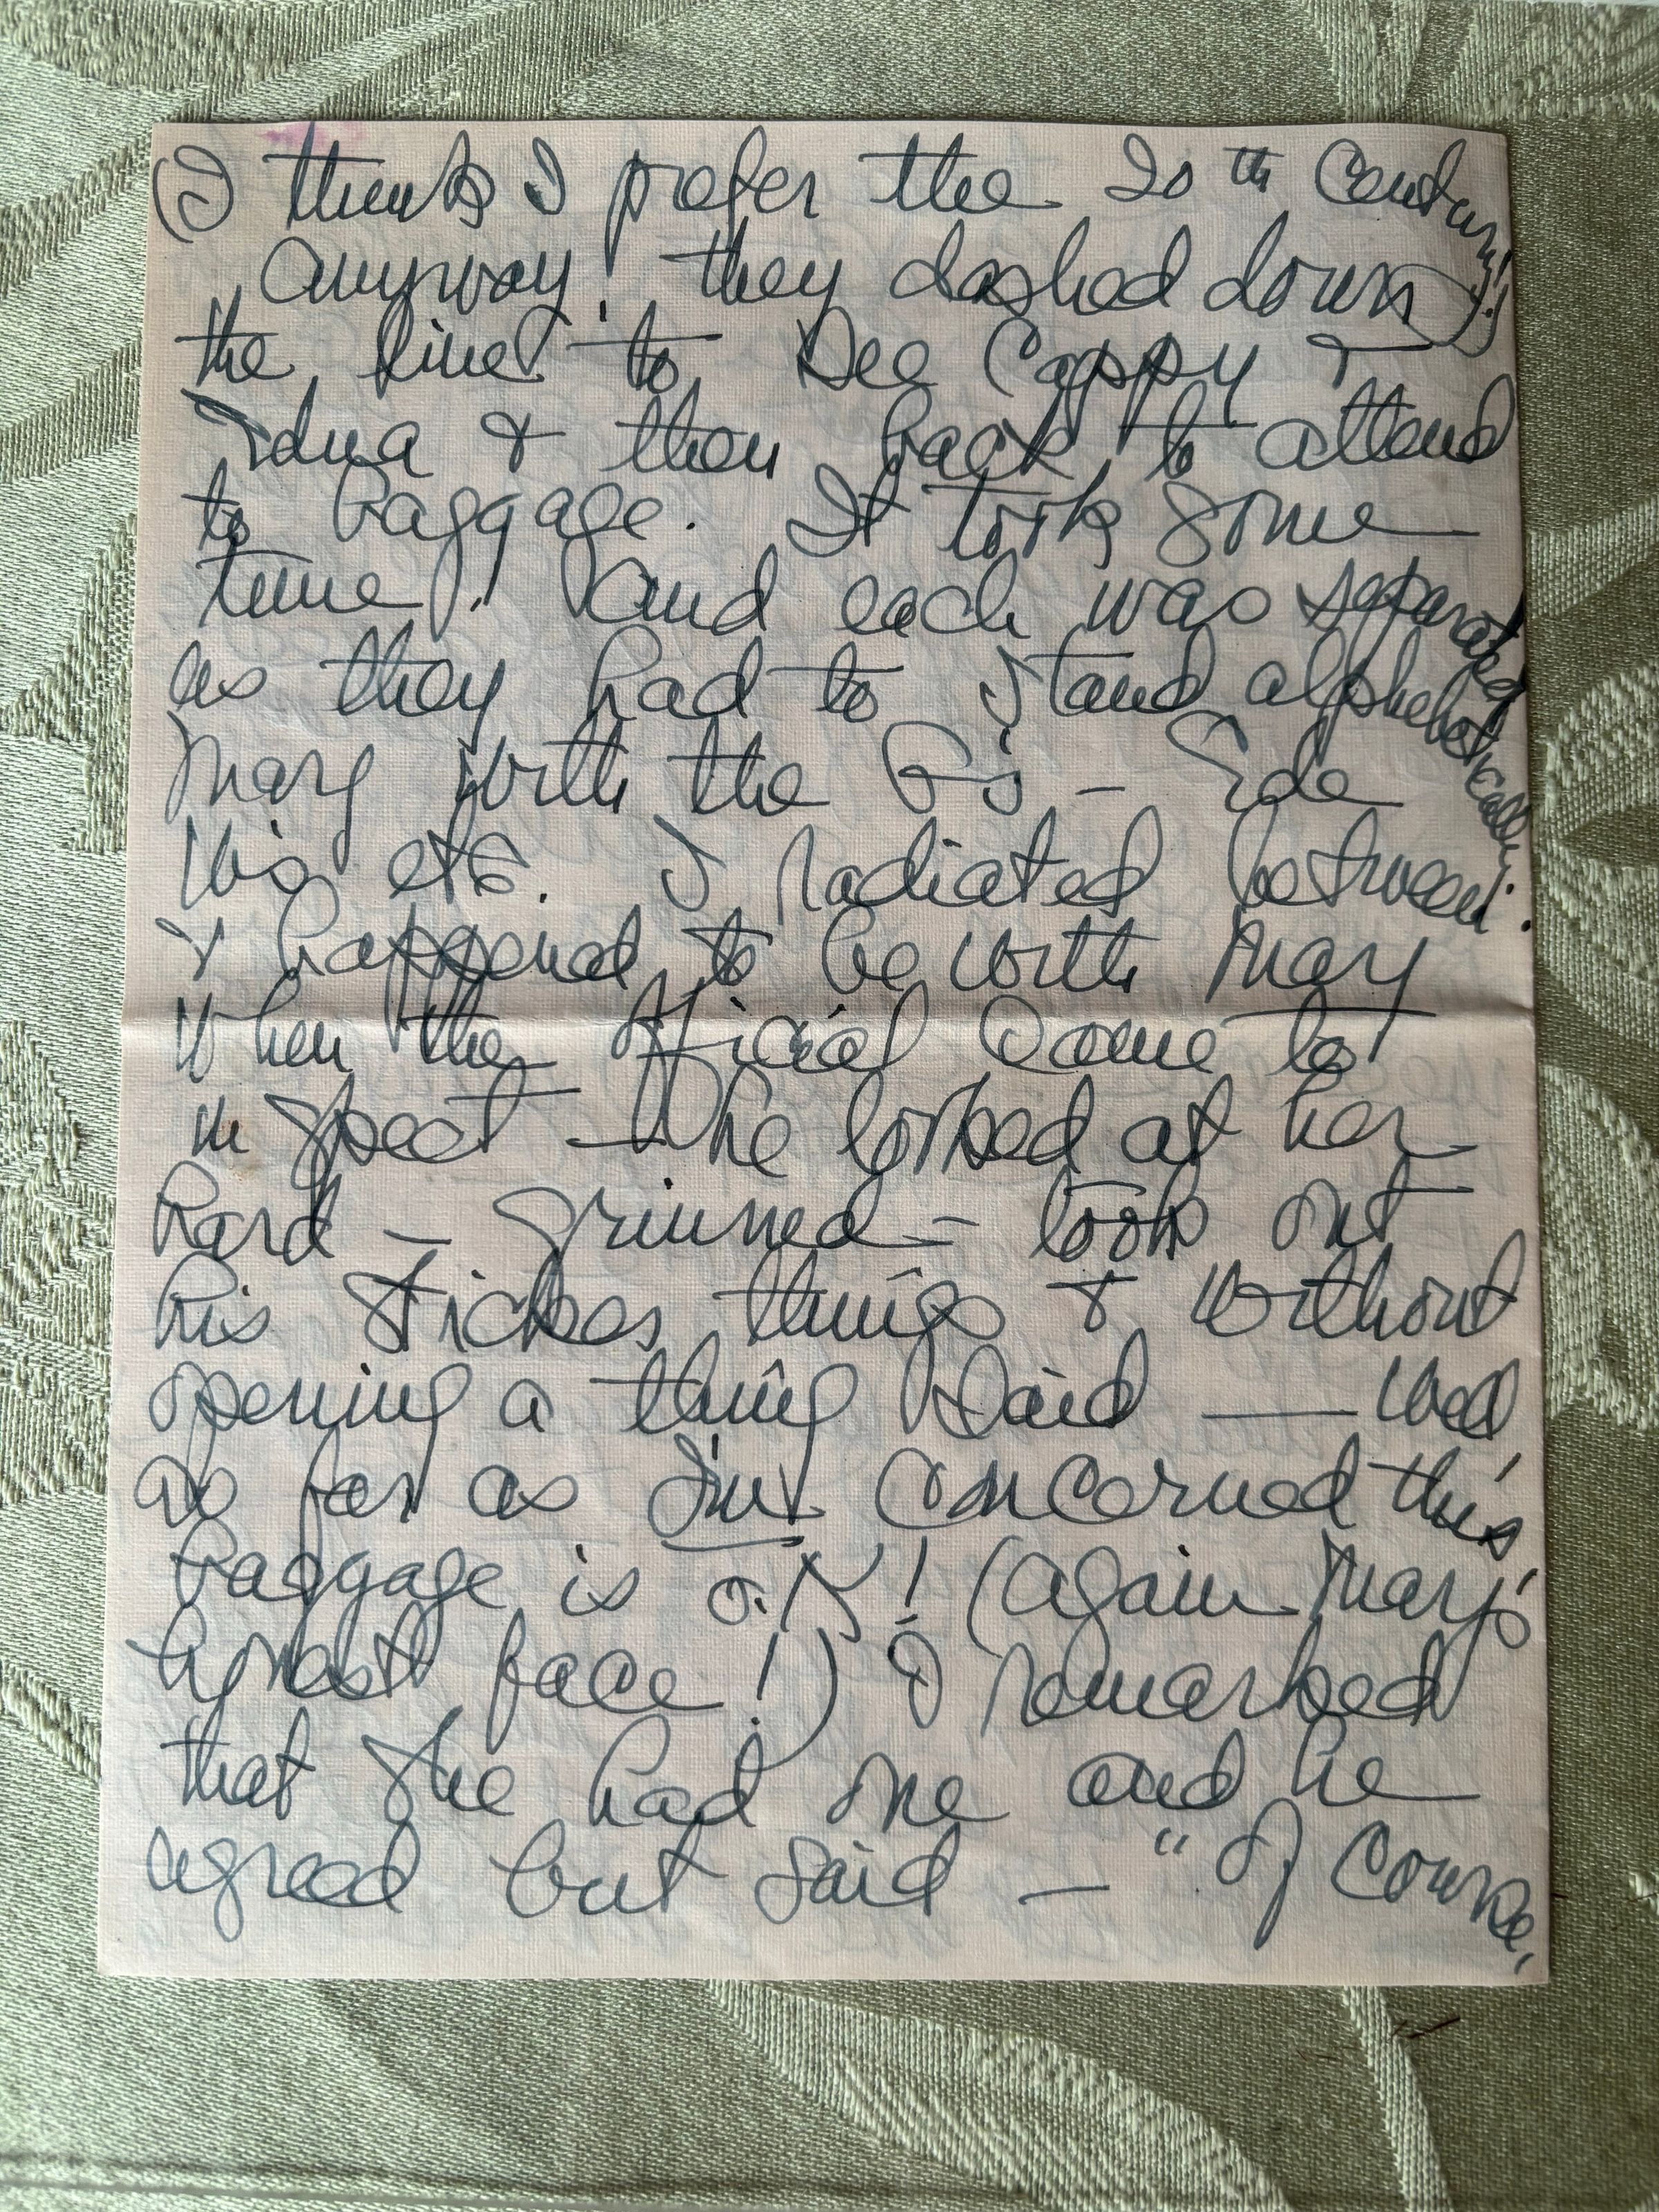 (I think I prefer the 20th Century!!)
Anyway! they dashed down
the line to see Cappy &
Edna & then back to attend
to baggage. It took some
time! And each was separated
as they had to stand alphabetically.
Mary with the G's — Ede
W's etc. I radiated between
& happened to be with Mary
when the official came to
inspect — He looked at her
hard — grinned — took out
his sticker things & without
opening a thing said — Well
so far as I'm concerned this
baggage is O.K! (Again Mary's
honest face!) I remarked
that she had one and he
agreed but said — "Of course,